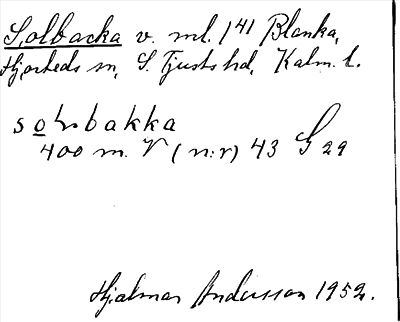 Solbacka v. ml. 1⁴¹ Blanka,
Hjorteds sn, S. Tjusts hd, Kalm. l.
solbakka
400 m. V (n:r) 43 G 29
Hjalmar Andersson 1952.